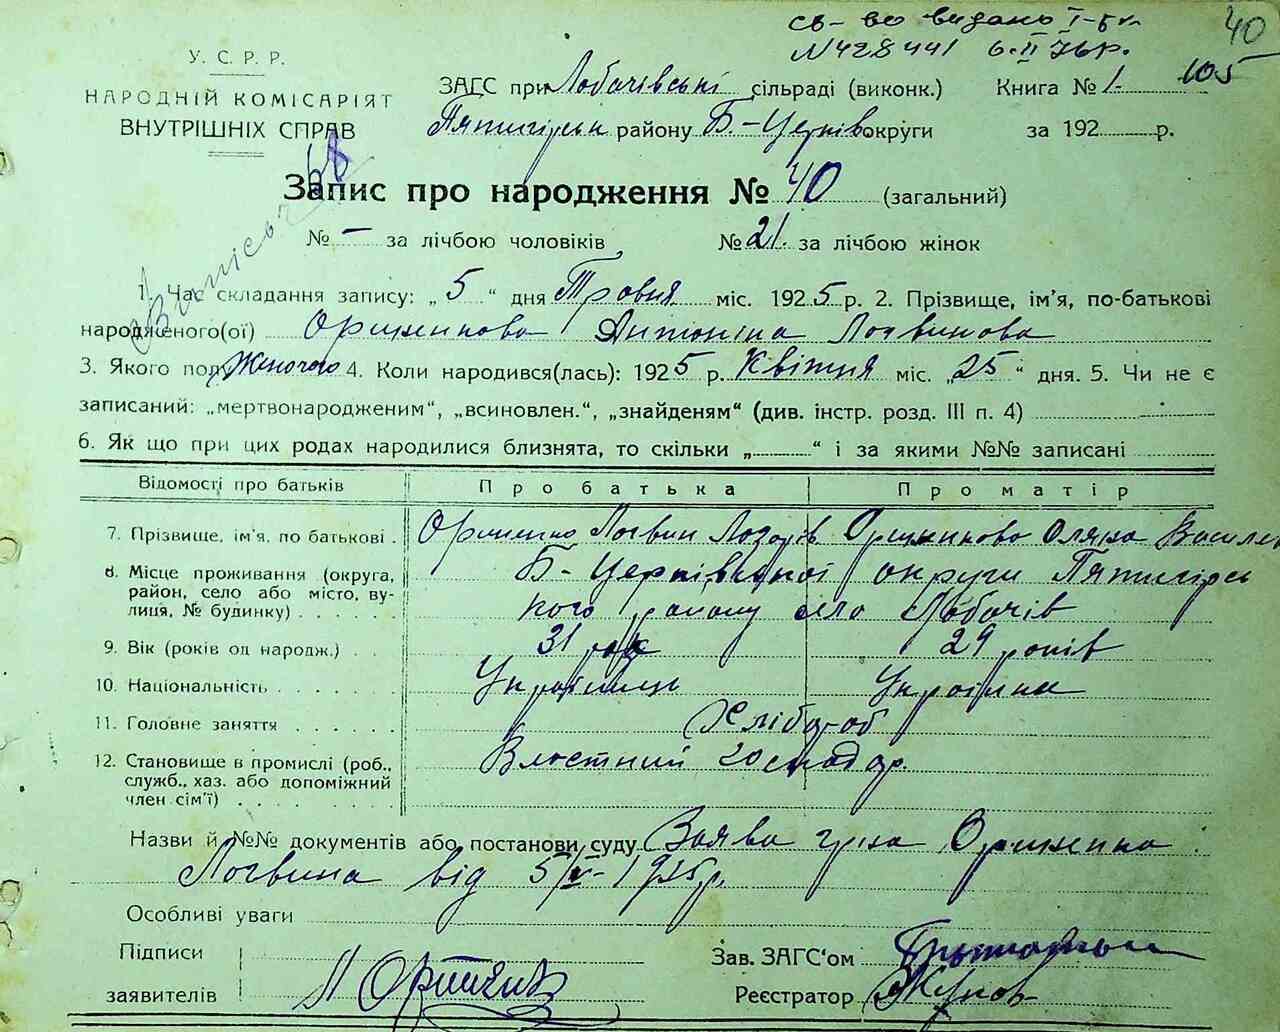 св-во видано I-БК
N428441 6.II 76р.
40
105
У. С. Р. Р.
НАРОДНІЙ КОМІСАРІЯТ
ВНУТРІШНІХ СПРАВ
ЗАГС при Лобачівські сільраді (виконк.) Книга № 1.
Пятигірськ району Б.-Церків округи за 192 р.
68
Запис про народження № 40 (загальний)
№ - за лічбою чоловіків № 21. за лічбою жінок
1. Час складання запису: „5“ дня Травня міс. 1925 р. 2. Прізвище, ім'я, по-батькові
народженого(ої) Оришинкова Антоніна Логвинова
3. Якого полу Жіночого 4. Коли народився(лась): 1925 р. Квітня міс. „25“ дня. 5. Чи не є
записаний: „мертвонародженим“, „всиновлен.“, „знайденям“ (див. інстр. розд. III п. 4)
6. Як що при цих родах народилися близнята, то скільки „ “ і за якими №№ записані
Відомості про батьків Про батька Про матір
7. Прізвище, ім'я, по батькові . Логвин Лазарів Оляна Василів
8. Місце проживання (округа, Б-Церківської округи Пятигірсь
район, село або місто, ву- кого району село Лобачів
лиця, № будинку) . . . . .
9. Вік (років од народж.) . 31 рок 29 років
10. Національність . . . . . . Українець Українка
11. Головне заняття . . . . . Хлібороб
12. Становище в промислі (роб., Власний господар.
служб., хаз. або допоміжний
член сім'ї) . . . . . . .
Назви й №№ документів або постанови суду Заява гр-на
Логвина від 5/V-1925р.
Особливі уваги
Підписи Зав. ЗАГС'ом
заявителів Реєстратор